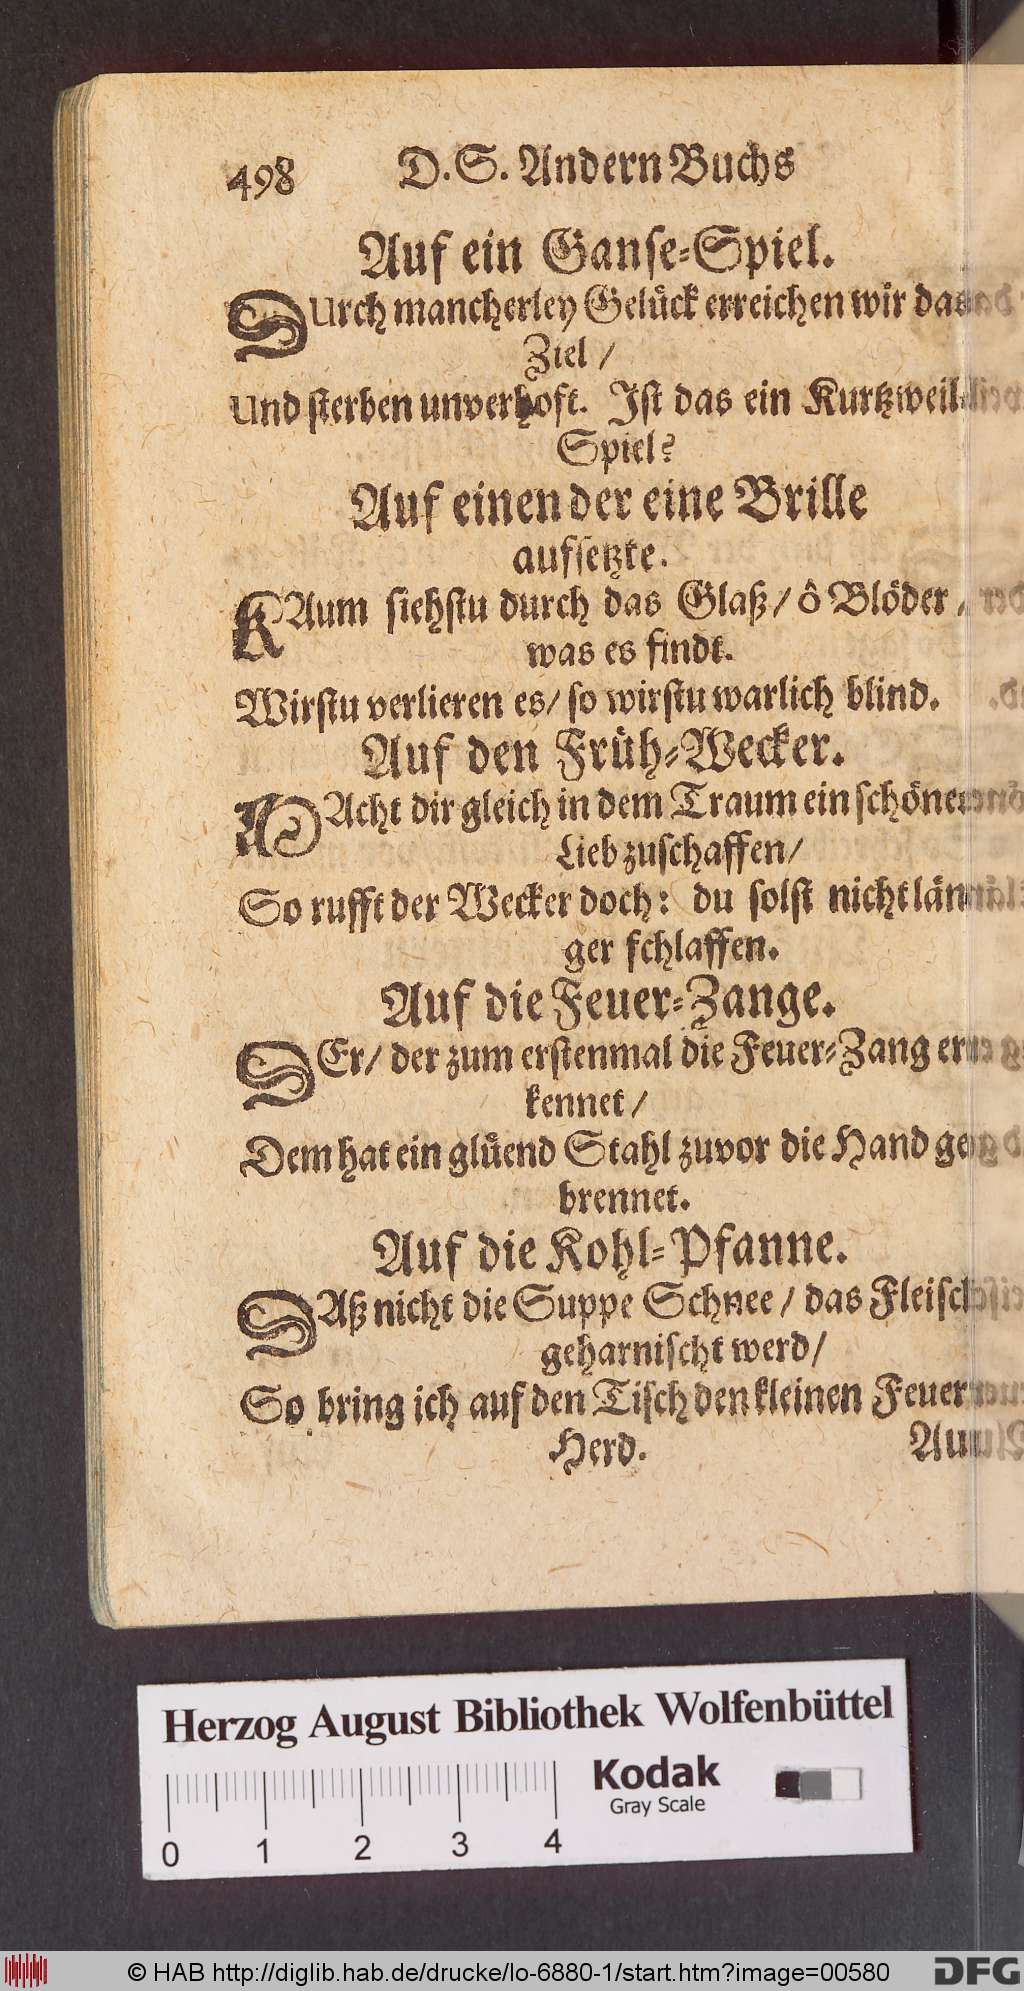 498 D. S. Andern Buchs
Auf ein Ganse-Spiel.
DUrch mancherley Gelück erreichen wir das
Ziel /
und sterben unverhoft. Ist das ein Kurtzweil-
Spiel?
Auf einen der eine Brille
aufsetzte.
KAum siehstu durch das Glaß / ô Blöder /
was es findt.
Wirstu verlieren es / so wirstu warlich blind.
Auf den Früh-Wecker.
WAcht dir gleich in dem Traum ein schönes
Lieb zuschaffen /
So rufft der Wecker doch: du solst nicht län
ger schlaffen.
Auf die Feuer-Zange.
DEr / der zum erstenmal die Feuer-Zang er
kennet /
Dem hat ein glüend Stahl zuvor die Hand ge
brennet.
Auf die Kohl-Pfanne.
DAß nicht die Suppe Schnee / das Fleisch
geharnischt werd /
So bring ich auf den Tisch den kleinen Feuer
Herd.
Herzog August Bibliothek Wolfenbüttel
Kodak
Gray Scale
0 1 2 3 4
© HAB http://diglib.hab.de/drucke/lo-6880-1/start.htm?image=00580 DFG